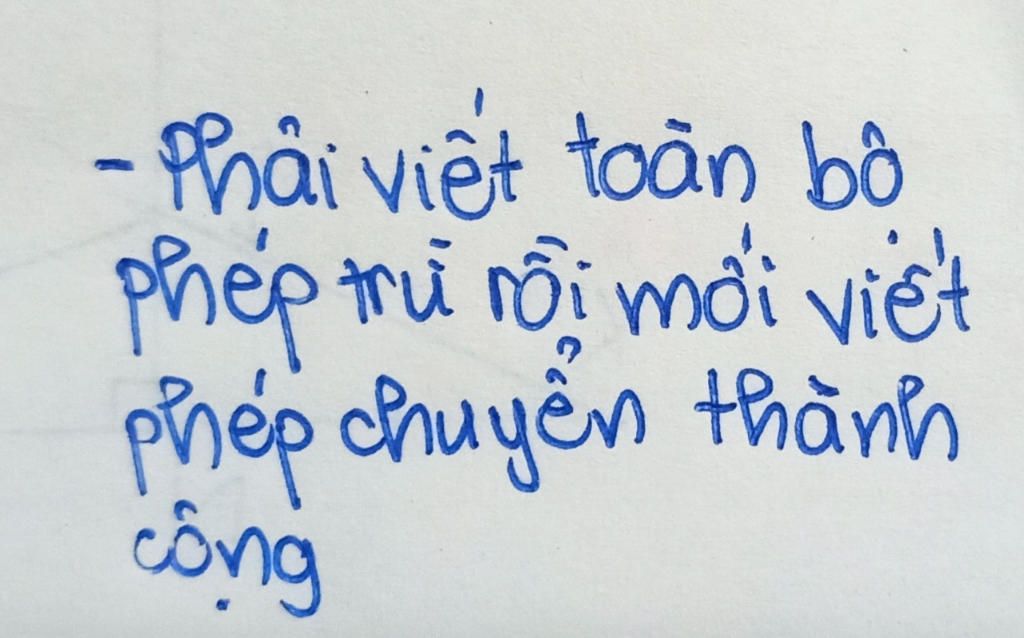 - Phải viết toàn bô
phép trừ rồi mới viết
phép chuyển thành
cộng